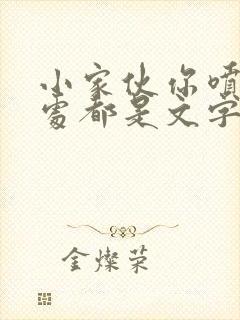 小家伙你喷
处都是文字
金灿荣